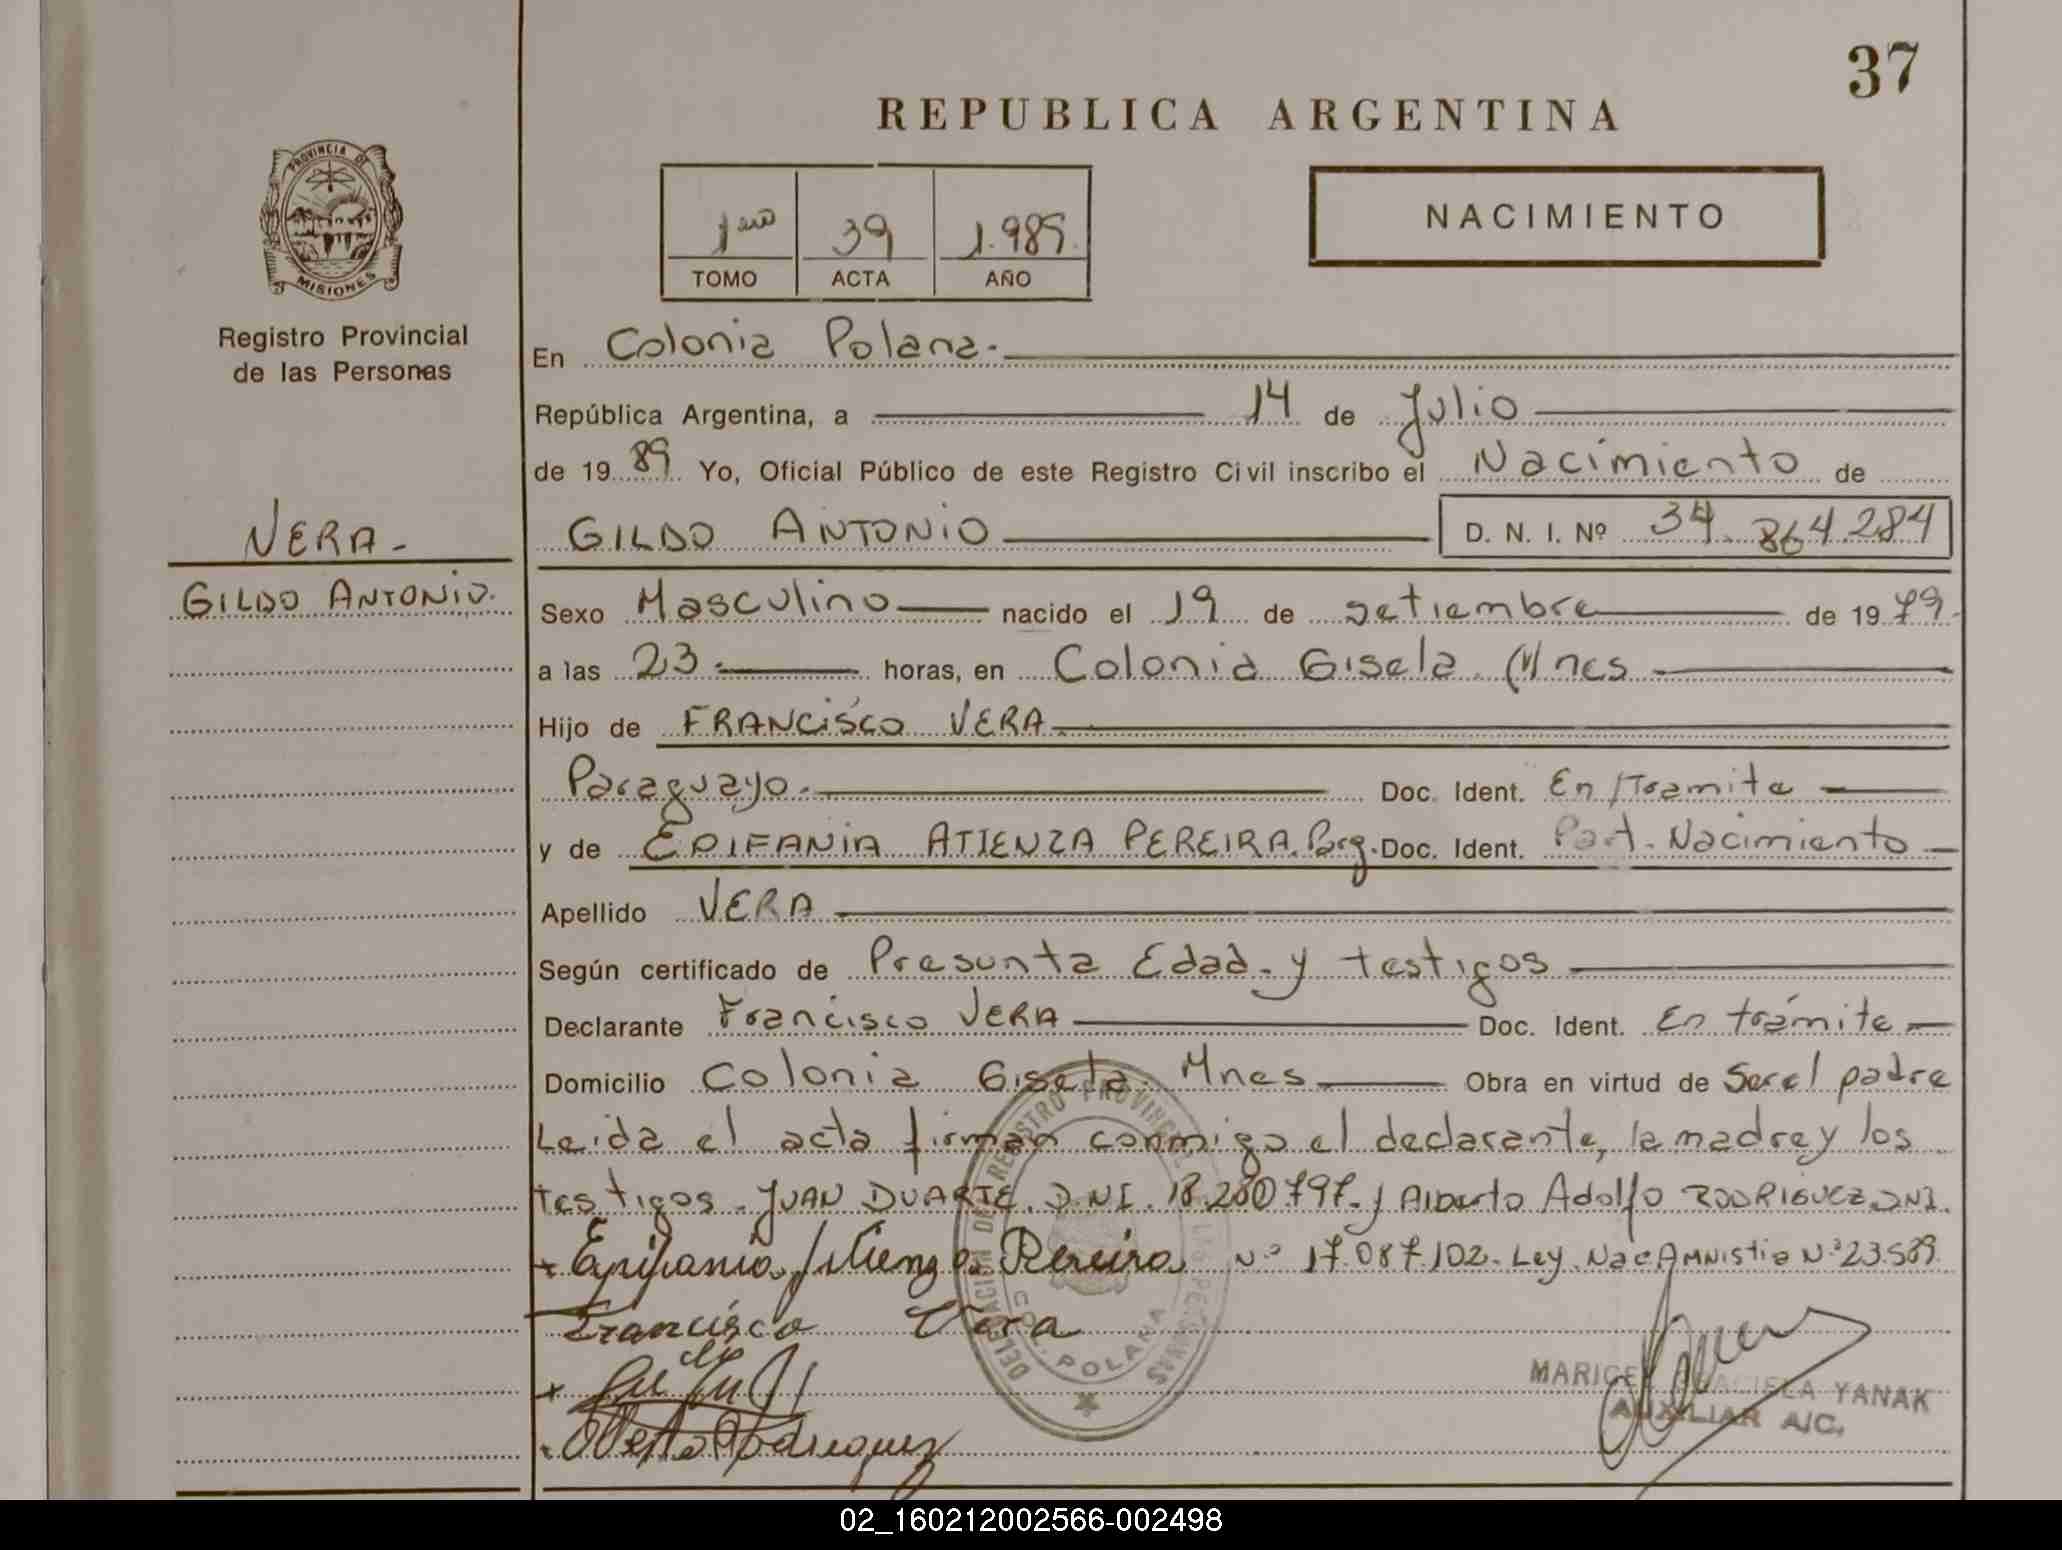 37
REPUBLICA ARGENTINA
PROVINCIA DE
MISIONES
1ero 39 1.989.
TOMO ACTA AÑO
NACIMIENTO
Registro Provincial
de las Personas
En Colonia Polana.
República Argentina, a 14 de Julio
de 19 89 Yo, Oficial Público de este Registro Civil inscribo el Nacimiento de
VERA-
GILDO ANTONIO D. N. I. Nº 34.864.284
GILDO ANTONIO.
Sexo Masculino nacido el 19 de setiembre de 19 79.
a las 23. horas, en Colonia Gisela. Mnes
Hijo de FRANCISCO VERA
Paraguayo. Doc. Ident. En/Tramite
y de EPIFANIA ATIENZA PEREIRA. Parg. Doc. Ident. Part. Nacimiento
Apellido VERA
Según certificado de Presunta Edad. y testigos
Declarante Francisco VERA Doc. Ident. En trámite
Domicilio Colonia Gisela. Mnes Obra en virtud de Ser el padre
Leida el acta firman conmigo el declarante, la madre y los
testigos. JUAN DUARTE. D.NI. 18.280797. y Alberto Adolfo RODRIGUEZ. DNI.
Epifania Atienza Pereira Nº 17.087.102. Ley Nac Amnistia Nº 23.509.
Francisco Vera
Alberto Rodriguez
DELEGACIÓN DEL REGISTRO PROVINCIAL DE LAS PERSONAS
COL. POLANA
MARICEL GRACIELA YANAK
AUXILIAR A/C.
02_160212002566-002498